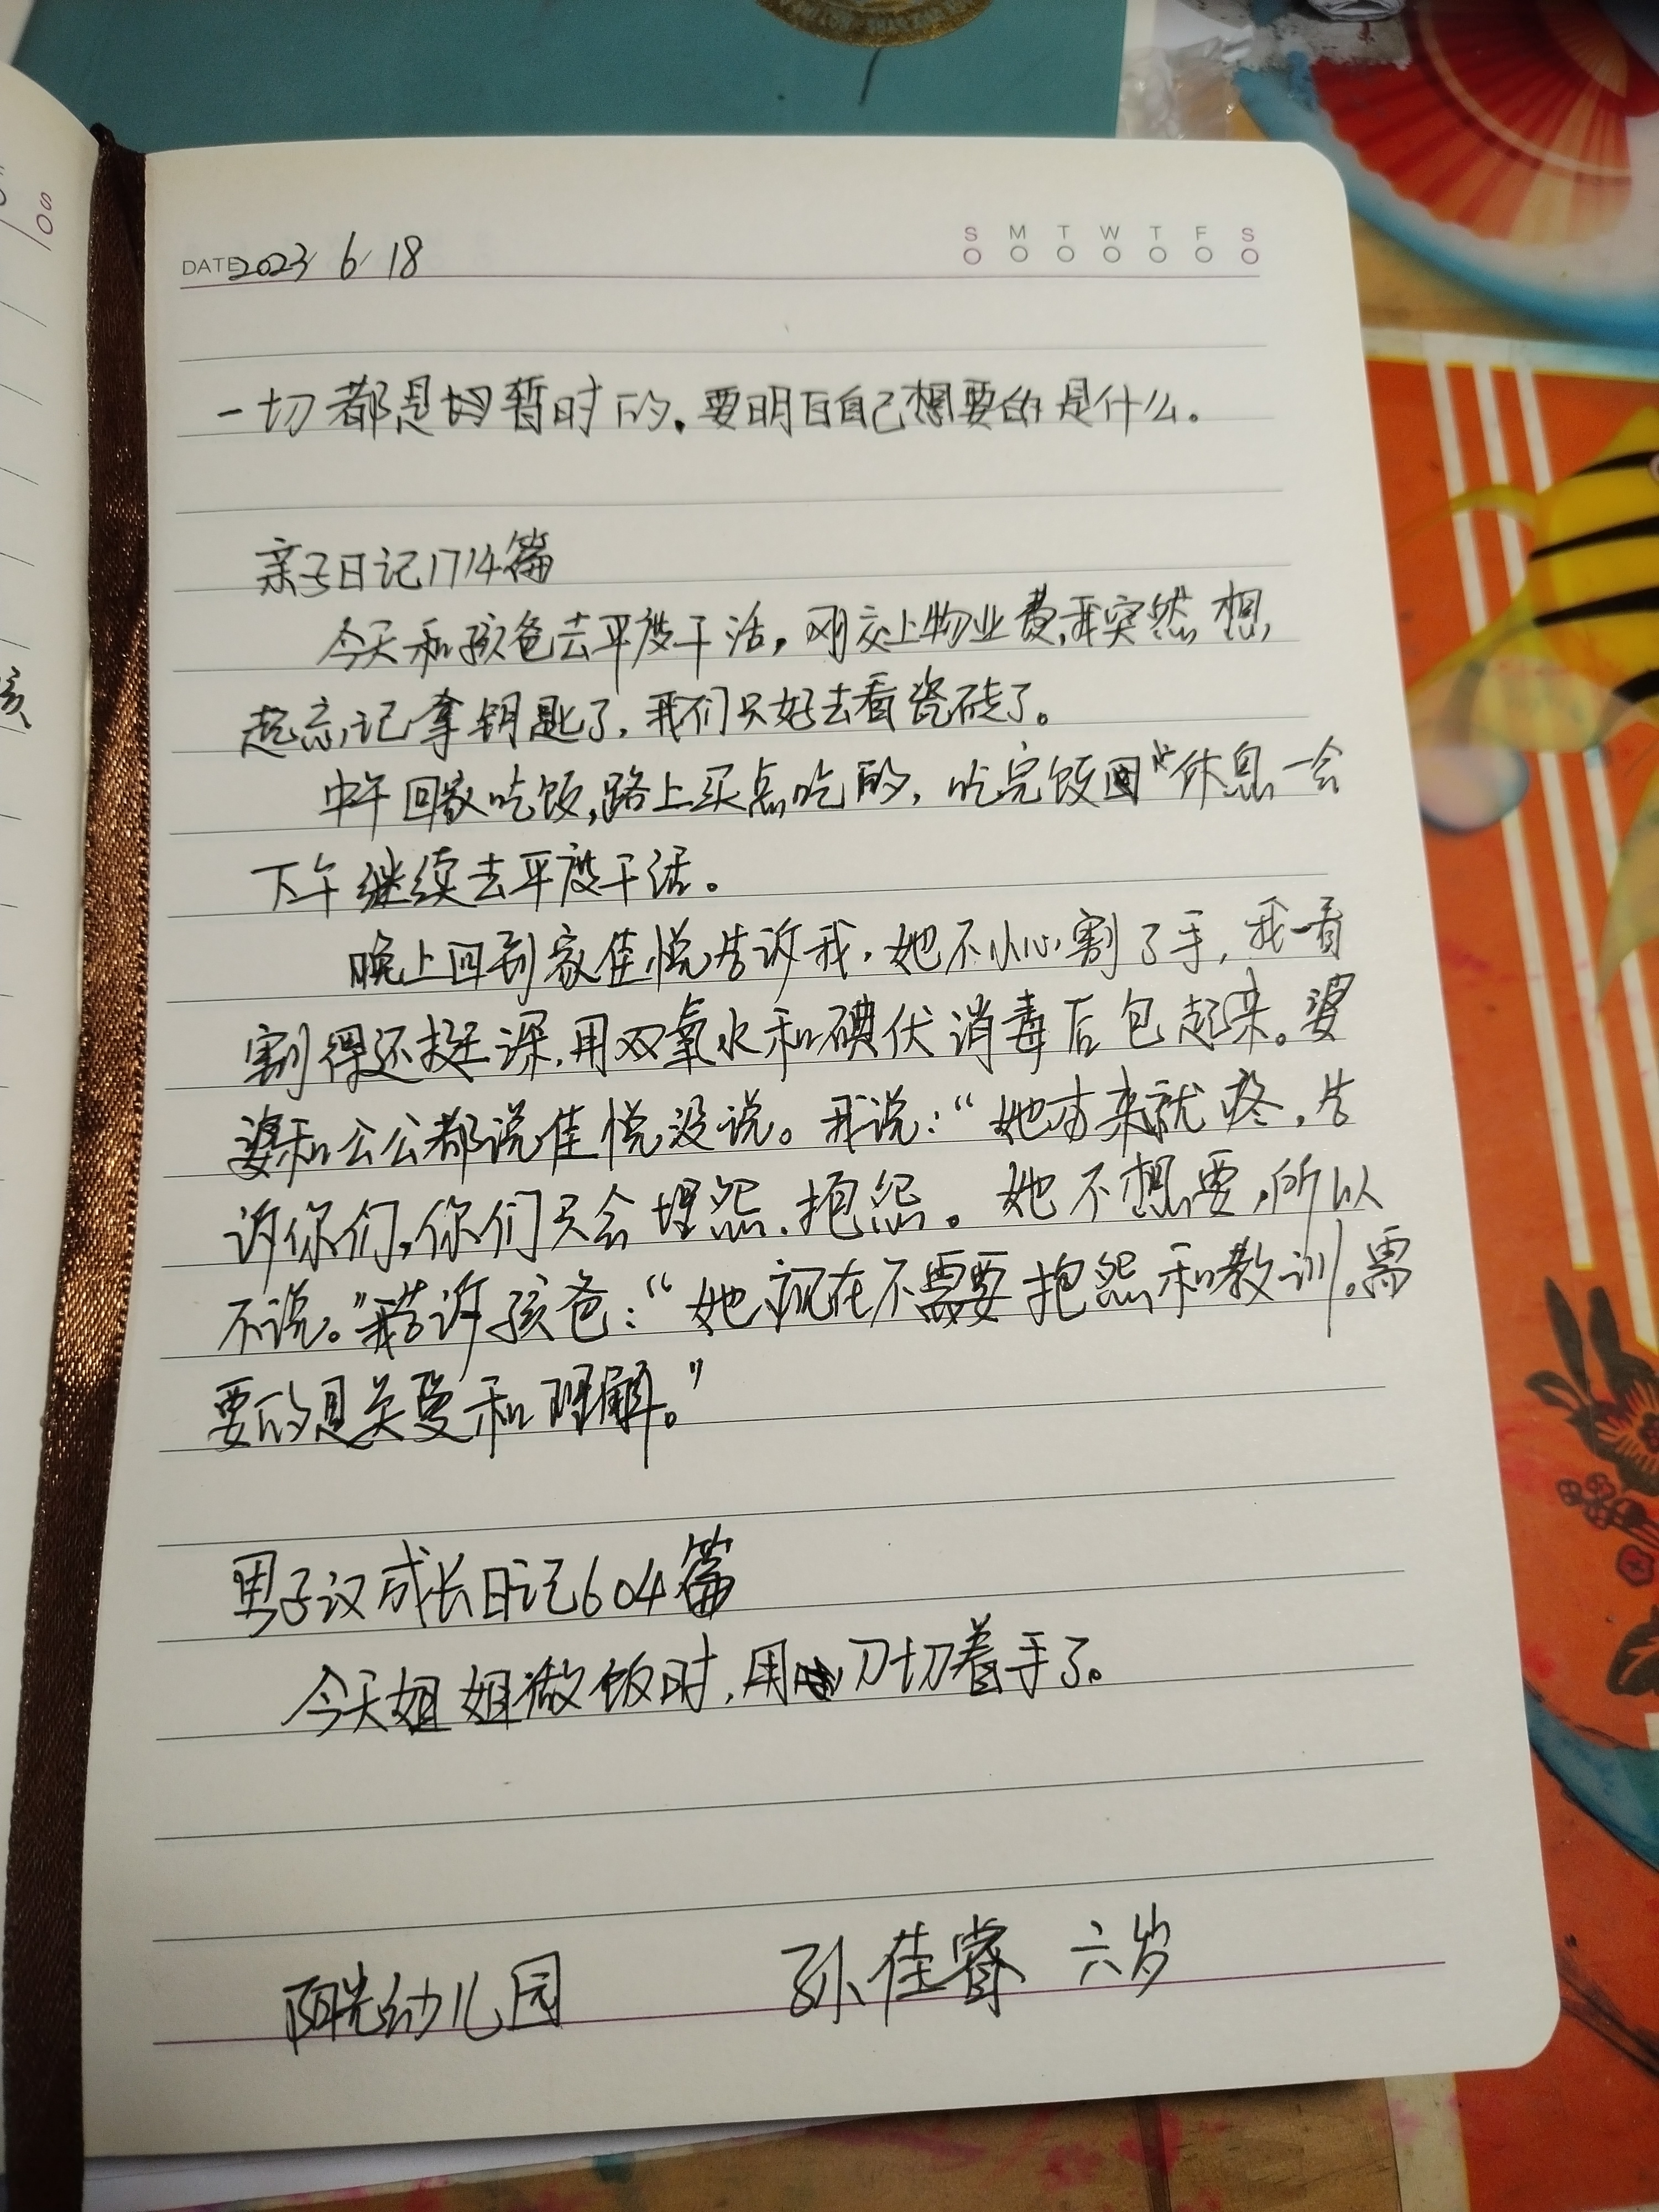 S M T W T F S
DATE 2023 6 18
一切都是暂时的。要明白自己想要的是什么。
亲子日记1714篇
今天和孩爸去平度干活，刚交上物业费，我突然想
起忘记拿钥匙了，我们只好去看瓷砖了。
中午回家吃饭，路上买点吃的，吃完饭休息一会
下午继续去平度干活。
晚上回到家佳悦告诉我，她不小心割了手，我一看
割得还挺深，用双氧水和碘伏消毒后包起来。婆
婆和公公都说佳悦没说。我说：“她本来就疼，告
诉你们，你们只会埋怨、抱怨。她不想要，所以
不说。”我告诉孩爸：“她现在不需要抱怨和教训。需
要的是关爱和理解。”
男子汉成长日记604篇
今天姐姐做饭时，用刀切着手了。
阳光幼儿园 孙佳睿 六岁